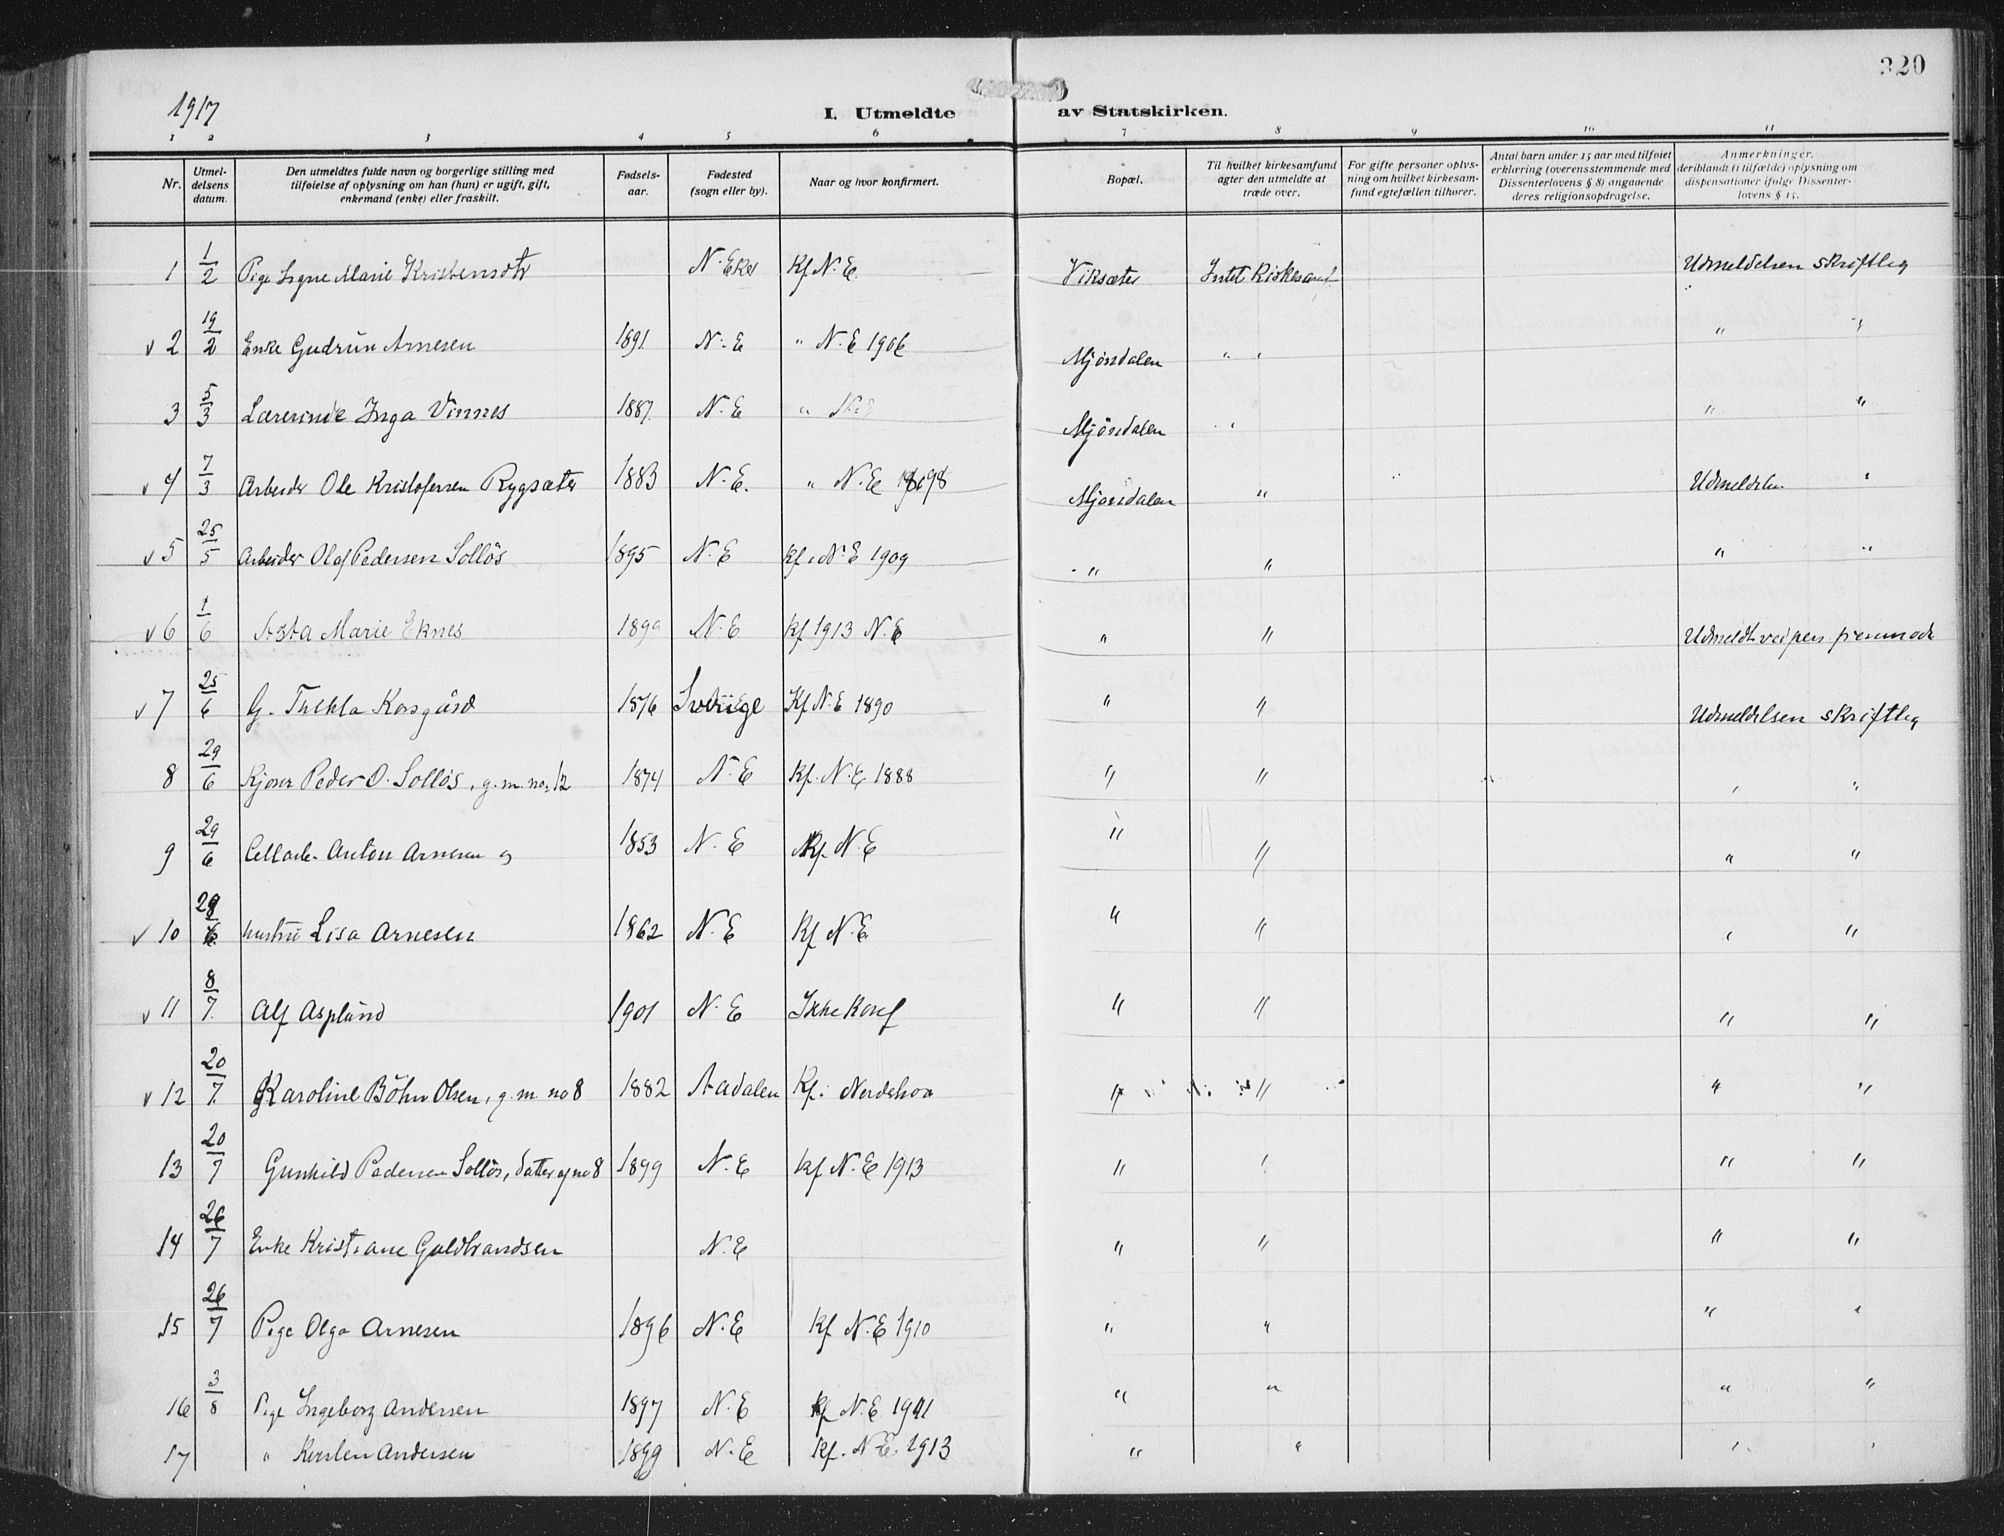 320
1917
I. Utmeldte av Statskirken.
1 2 3 4 5 6 7 8 9 10 11
Nr.
Utmel-
delsens
datum.
Den utmeldtes fulde navn og borgerlige stilling med
tilføielse af oplysning om han (hun) er ugift, gift,
enkemand (enke) eller fraskilt.
Fødsels-
aar.
Fødested
(sogn eller by).
Naar og hvor konfirmert.
Bopæl.
Til hvilket kirkesamfund
agter den utmeldte at
træde over.
For gifte personer oplys-
ning om hvilket kirkesam-
fund egtefællen tilhører.
Antal barn under 15 aar med tilføiet
erklæring (overensstemmende med
Dissenterlovens § 8) angaaende
deres religionsopdragelse.
Anmerkninger,
deriblandt (i tilfælde) oplysning om
dispensationer ifølge Dissenter-
lovens § 15.
1 1/2 Pige Signe Marie Kristensdtr N. Eker Kf N. E. Viksæter Intet Kirkesamf. Udmeldelsen skriftleg
v 2 19/2 Enke Gudrun Arnesen 1891 N. E " N. E 1906 Mjøndalen " " " "
3 5/3 Lærerinde Inga Vinnes 1887. N. E " N. E Mjöndalen " " " "
v 4 7/3 Arbeider Ole Kristofersen Rygsæter 1883 N. E. " N. E 1898 Mjøndalen " Udmeldelse "
v 5 25/5 Arbeider Olaf Pedersen Solløs 1895 N. E Kf. N. E 1909 " " " "
v 6 1/6 Asta Marie Eknes 1899 N. E Kf 1913 N. E " " Udmeldt ved pers fremmöde
v 7 25/6 G. Thekla Korsgård 1876 Sverige Kf N. E 1890 " " Udmeldelsen skriftleg
8 29/6 Kjører Peder O. Solløs, g. m. no. 12 1874 N. E Kf. N. E 1888 " " " "
9 29/6 Cellarb. Anton Arnesen og 1853 N. E Kf. N. E " " " "
v 10 29/6 hustru Lisa Arnesen 1862 N. E Kf N. E " " " "
v 11 8/7 Alf Asplund 1901 N. E Ikke Konf " " " "
v 12 20/7 Karoline Böhn Olsen, g. m no 8 1882 Aadalen Kf. Norderhov " " " "
13 20/7 Gunhild Pedersen Solløs, datter af no 8 1899 N. E Kf N. E 1913 " " " "
14 26/7 Enke Kristiane Guldbrandsen N. E " " " "
15 26/7 Pige Olga Arnesen 1896 N. E Kf N. E 1910 " " " "
16 3/8 Pige Ingeborg Andersen 1897 N. E Kf N. E 1911 " " " "
17 " Kirsten Andersen 1899 N. E Kf. N. E. 1913 " " " "